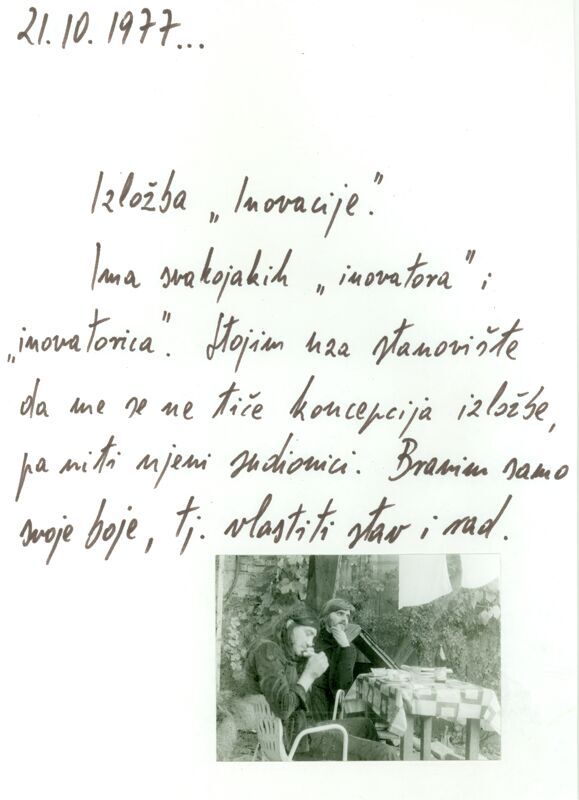 21.10.1977...
Izložba „Inovacije".
Ima svakojakih „inovatora" i
„inovatorica". Stojim uza stanovište
da me se ne tiče koncepcija izložbe,
pa niti njeni sudionici. Branim samo
svoje boje, tj. vlastiti stav i rad.